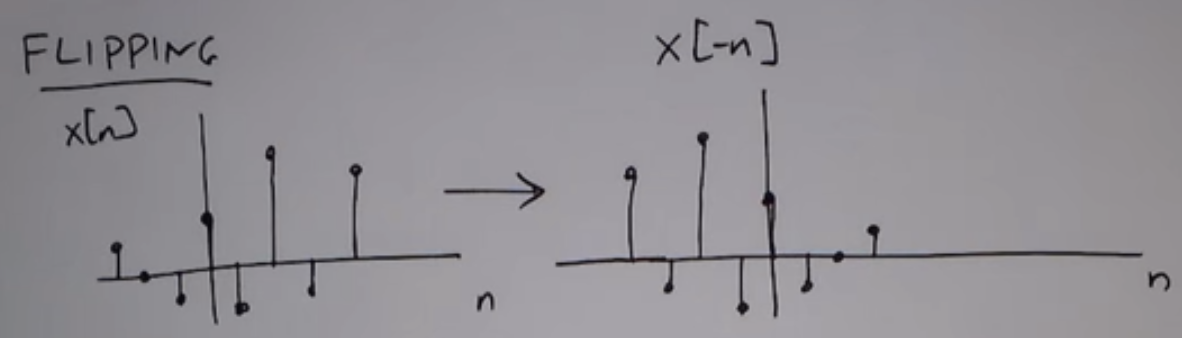 FLIPPING
x[n]
x[-n]
n
n